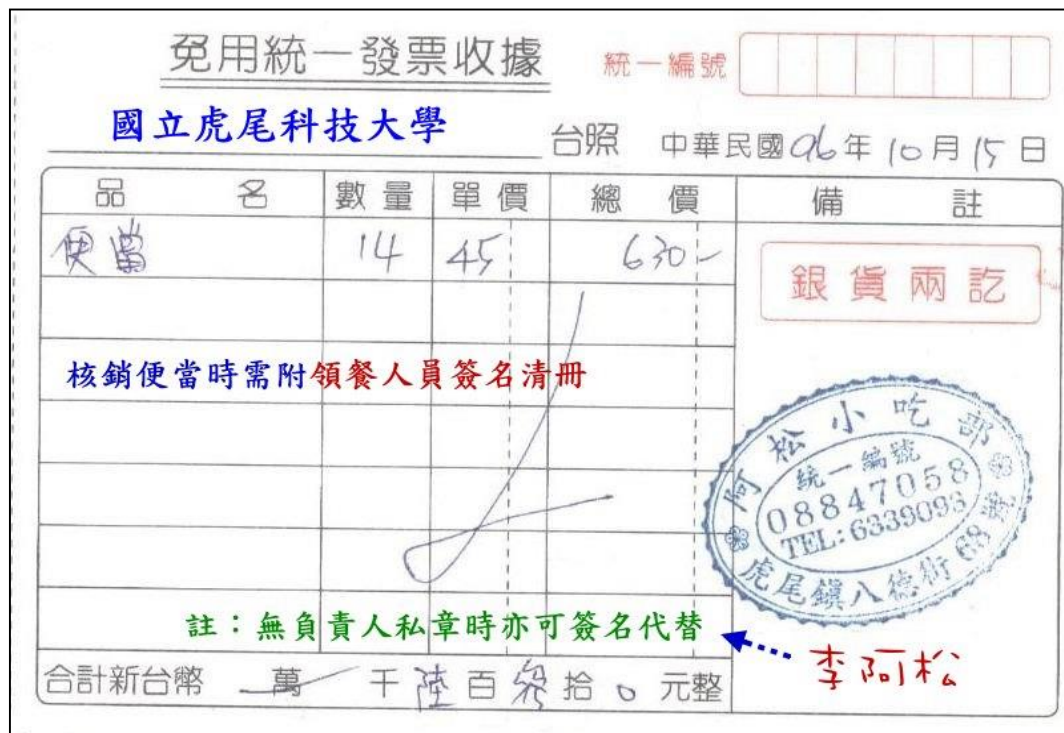 免用統一發票收據 統一編號
國立虎尾科技大學 台照 中華民國96年10月15日
品名 數量 單價 總價 備註
便當 14 45 630-
銀貨兩訖
核銷便當時需附領餐人員簽名清冊
阿松小吃部
統一編號
08847058
TEL:6339093
虎尾鎮八德街68號
註：無負責人私章時亦可簽名代替
李阿松
合計新台幣 萬 千陸百參拾0元整